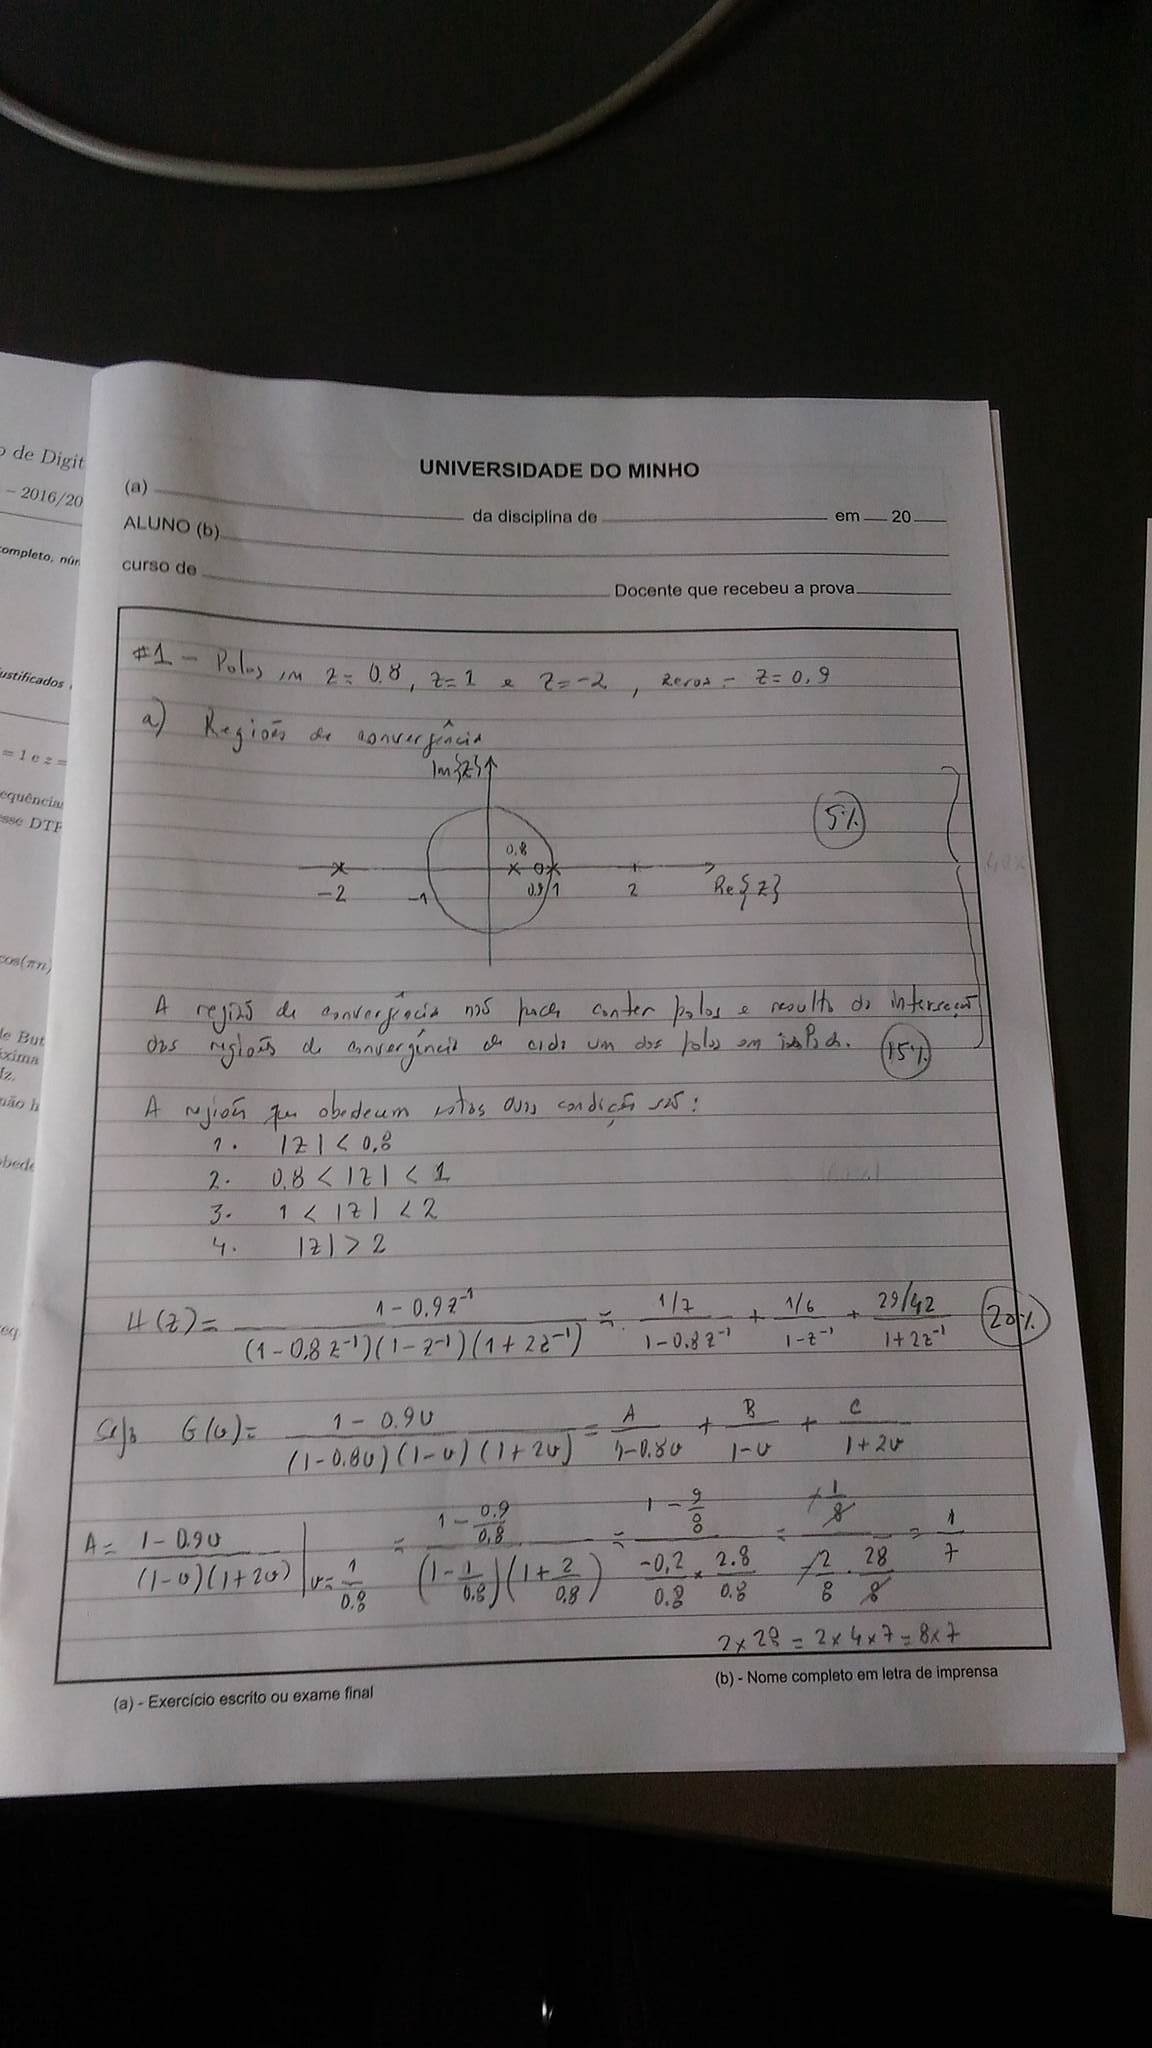 o de Digit
– 2016/20
completo, núm
ustificados
= 1 e z =
equência
esse DTF
cos(πn)
de But
óxima
Iz.
não h
bede
req
UNIVERSIDADE DO MINHO
(a) da disciplina de em 20
ALUNO (b)
curso de Docente que recebeu a prova
#1 – Polos em z = 0.8, z = 1 e z = -2, zeros – z = 0,9
a) Regiões de convergência
Im{z}
5%
0.8
-2 -1 0.9/1 2 Re{z}
A região de convergência não pode conter polos e resulta da interseção
das regiões de convergência de cada um dos polos em isolado. 15%
A regiões que obedecem estas duas condições são:
1. |z| < 0,8
2. 0,8 < |z| < 1
3. 1 < |z| < 2
4. |z| > 2
H(z) = (1 - 0.9z⁻¹) / ((1 - 0.8z⁻¹)(1 - z⁻¹)(1 + 2z⁻¹)) = (1/7)/(1 - 0.8z⁻¹) + (1/6)/(1 - z⁻¹) + (29/42)/(1 + 2z⁻¹) 20%
Seja G(v) = (1 - 0.9v) / ((1 - 0.8v)(1 - v)(1 + 2v)) = A/(1 - 0.8v) + B/(1 - v) + C/(1 + 2v)
A = (1 - 0.9v) / ((1 - v)(1 + 2v)) | v = 1/0.8 = (1 - 0.9/0.8) / ((1 - 1/0.8)(1 + 2/0.8)) = (1 - 9/8) / (-0.2/0.8 × 2.8/0.8) = (-1/8) / (-2/8 · 28/8) = 1/7
2 × 28 = 2 × 4 × 7 = 8 × 7
(a) - Exercício escrito ou exame final
(b) - Nome completo em letra de imprensa